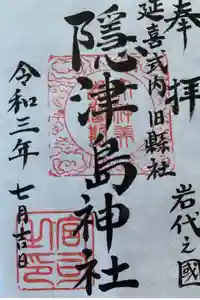 奉拝
岩代之國
延喜式内旧縣社
隠津島神社
令和三年
七月吉日
宮司之印